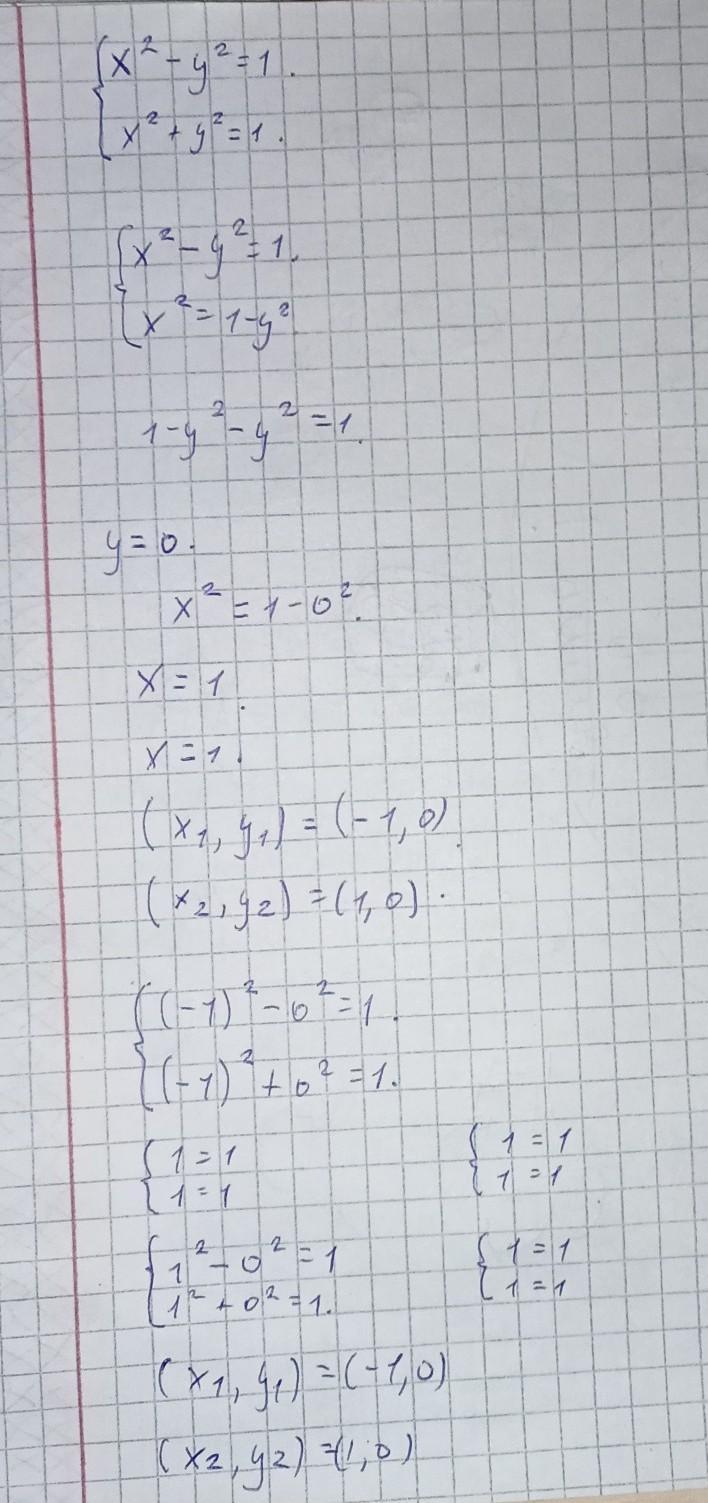 { x² - y² = 1.
x² + y² = 1.
{ x² - y² = 1.
x² = 1 - y²
1 - y² - y² = 1.
y = 0.
x² = 1 - 0².
x = 1.
x = 1.
(x₁, y₁) = (-1, 0).
(x₂, y₂) = (1, 0).
{ (-1)² - 0² = 1.
(-1)² + 0² = 1.
{ 1 = 1 { 1 = 1
1 = 1 1 = 1
{ 1² - 0² = 1 { 1 = 1
1² + 0² = 1. 1 = 1
(x₁, y₁) = (-1, 0)
(x₂, y₂) = (1, 0)